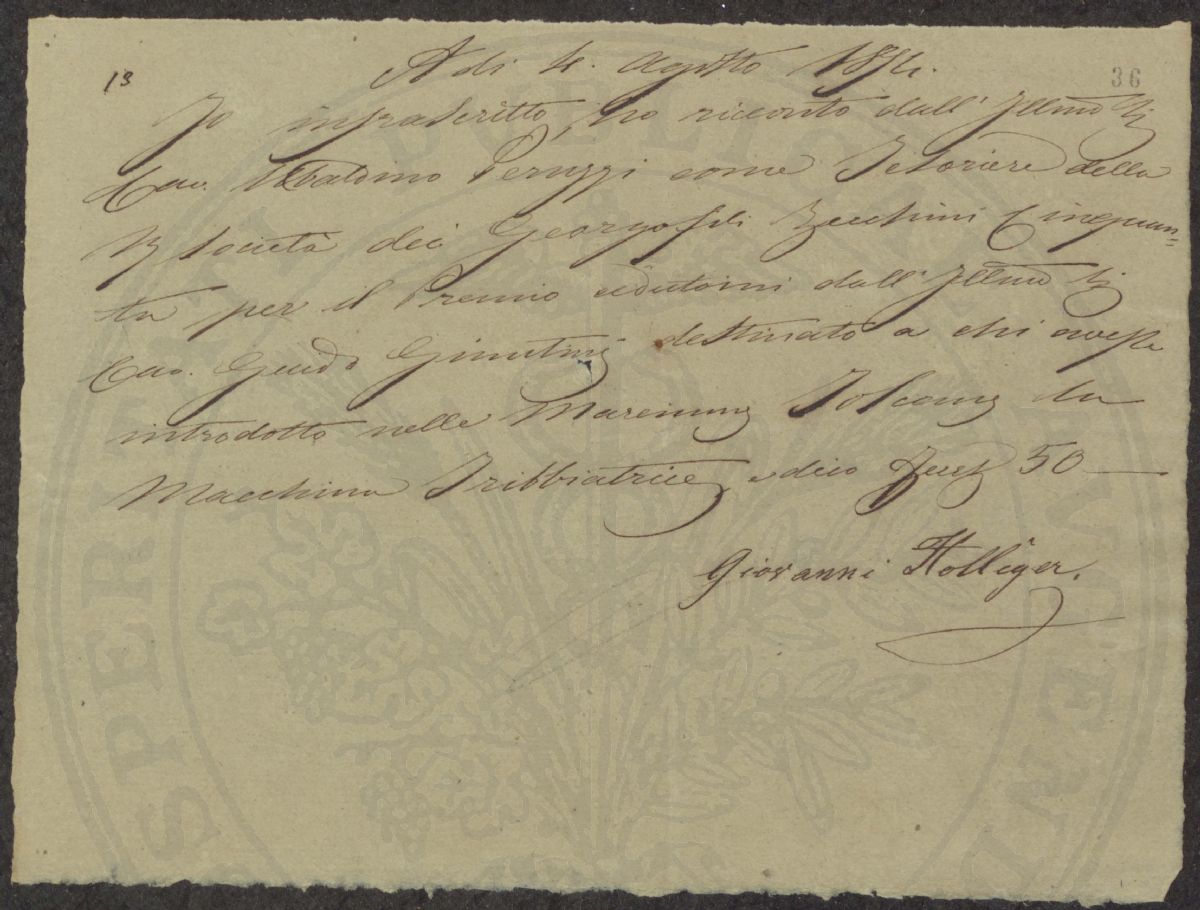 A di 4. Agosto 1854.
13
36
Io infrascritto, ho riceuto dall' Illmo Sig
Cav. Ubaldino Peruzzi come Tesoriere della
R Società dei Georgofili Zecchini Cinquan=
ta per il Premio cedutomi dall' Illmo Sig
Cav. Guido Giuntini destinato a chi avesse
introdotto nelle Maremme Toscane la
Macchina Tribbiatrice, dico Zecc 50 —
Giovanni Holliger.